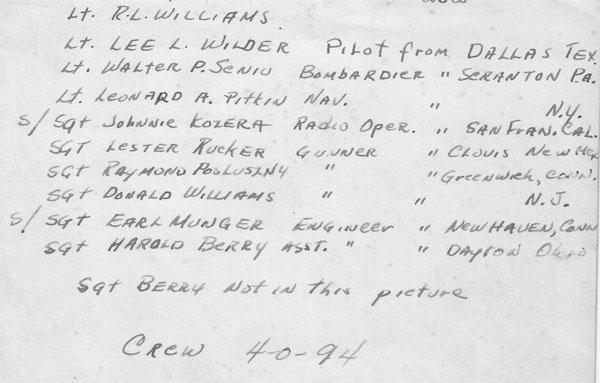 Lt. R.L. WILLIAMS.
Lt. LEE L. WILDER PILOT from DALLAS TEX.
Lt. WALTER P. SENIO BOMBARDIER " SCRANTON PA.
Lt. LEONARD A. PITKIN NAV. " N.Y.
S/Sgt JOHNNIE KOZERA RADIO OPER. " SAN FRAN. CAL.
SGT LESTER RUCKER GUNNER " CLOVIS NEW MEX
SGT RAYMOND POSLUSZNY " " GREENWICH, CONN.
SGT DONALD WILLIAMS " " N.J.
S/SGT EARL MUNGER ENGINEER " NEW HAVEN, CONN
SGT HAROLD BERRY ASST. " " DAYTON OHIO
Sgt BERRY NOT IN this picture
CREW 40-94